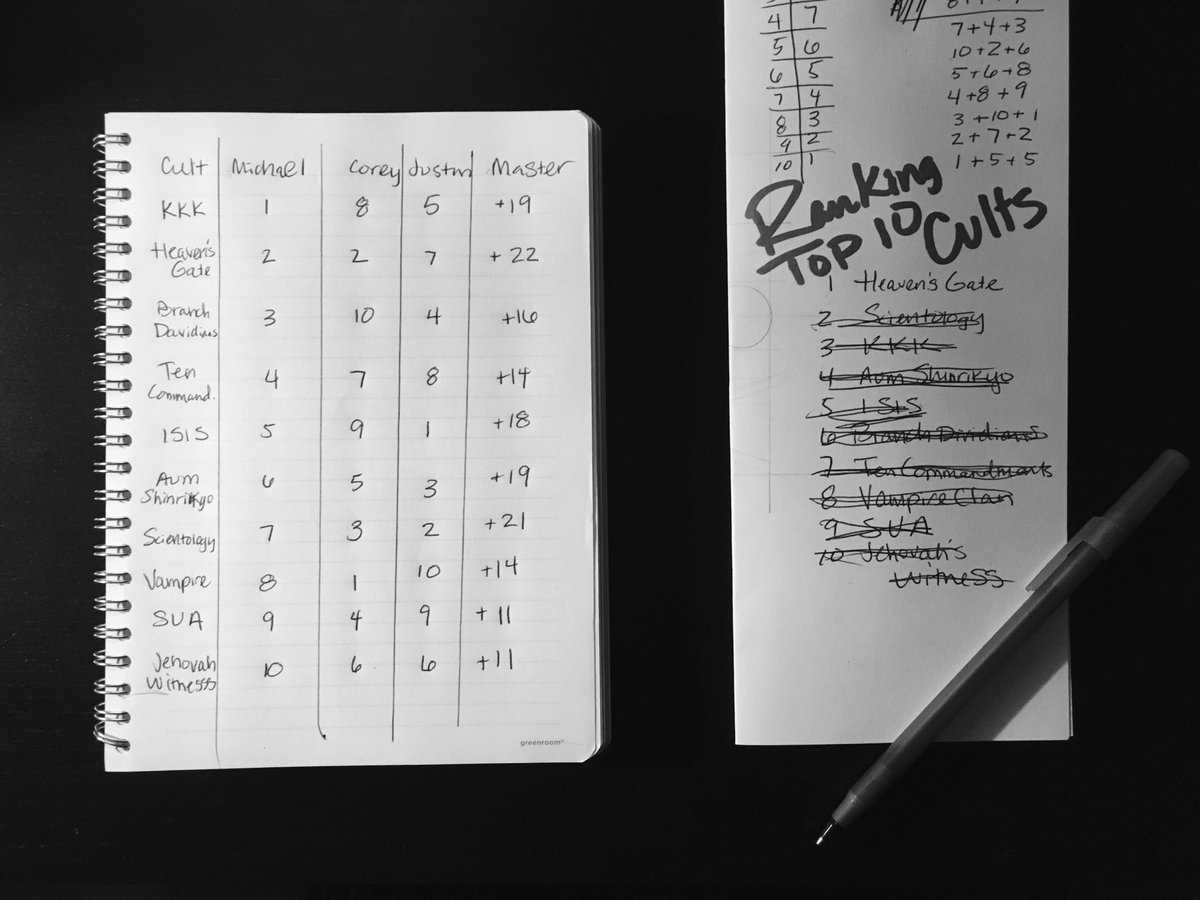 Cult Michael Corey Justin Master
KKK 1 8 5 +19
Heaven's
Gate 2 2 7 +22
Branch
Davidians 3 10 4 +16
Ten
Command. 4 7 8 +14
ISIS 5 9 1 +18
Aum
Shinrikyo 6 5 3 +19
Scientology 7 3 2 +21
Vampire 8 1 10 +14
SUA 9 4 9 +11
Jehovah
Witnesss 10 6 6 +11
greenroom
4 7
5 6
6 5
7 4
8 3
9 2
10 1
7+4+3
10+2+6
5+6+8
4+8+9
3+10+1
2+7+2
1+5+5
Ranking
Top 10 Cults
1 Heaven's Gate
2 Scientology
3 KKK
4 Aum Shinrikyo
5 ISIS
6 Branch Dividians
7 Ten Commandments
8 Vampire Clan
9 SUA
10 Jehovah's
Witness